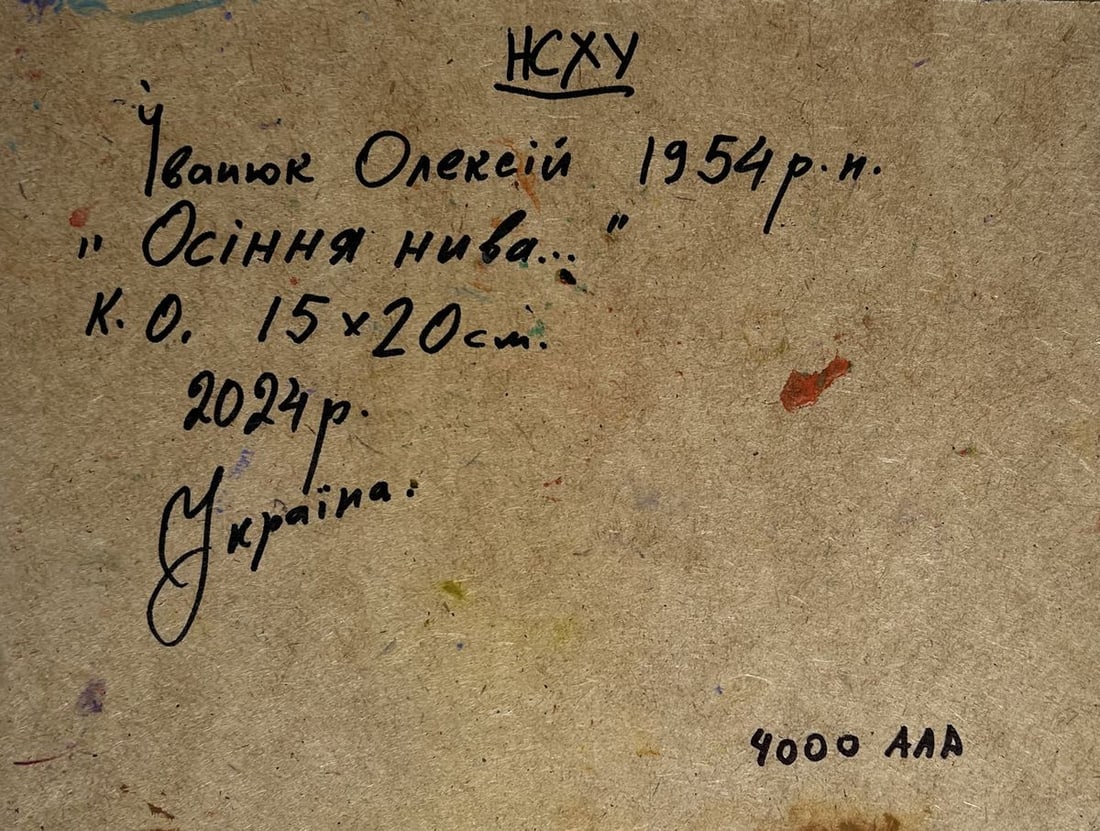 НСХУ
Іванюк Олексій 1954 р.н.
„ Осіння нива... "
К. О. 15 × 20 см.
2024 р.
Україна.
4000 АЛА